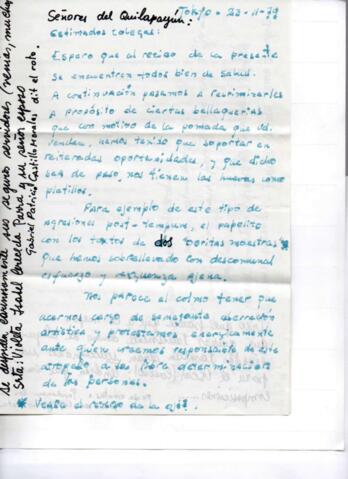 Tokyo - 23-11-79
Señores del Quilapayún:
Estimados colegas:
Espero que al recibo de la presente
se encuentren todos bien de salud.
A continuación pasamos a recriminarles
a propósito de ciertas bellaquerias
que con motivo de la pomada que Ud.
venden, hemos tenido que soportar en
reiteradas oportunidades, y que dicho
sea de paso, nos tienen las huevas como
platillos.
Para ejemplo de este tipo de
agresiones post-tempum, el papelito
con los textos de dos boritas nuestras *
que hemos sobrellevado con descomunal
esfuerzo y verguenza ajena.
Nos parece el colmo tener que
acernos cargo de semejante aberración
artística y protestamos energicamente
ante quien creemos responsable de este
atropello a la libre determinación
de las personas.
* Vease el reverso de la oja.
Se despiden eternamente sus seguros servidores,
Srta: Violeta Isabel Parra y su señor esposo
Gabriel Patricio Castillo Morales dit el roto.